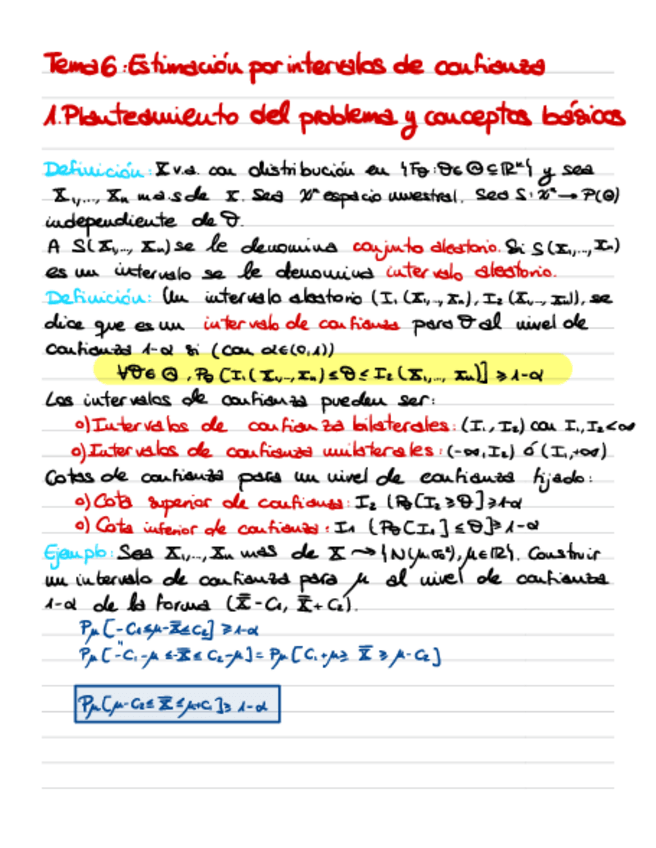 Tema 6: Estimación por intervalos de confianza
1. Planteamiento del problema y conceptos básicos
Definición: X v.a. con distribución en {Fθ : θ ∈ Θ ⊆ ℝᵏ} y sea
X₁,..., Xₙ m.a.s de X. Sea χⁿ espacio muestral. Sea S: χⁿ → P(Θ)
independiente de θ.
A S(X₁,..., Xₙ) se le denomina conjunto aleatorio. Si S(X₁,..., Xₙ)
es un intervalo se le denomina intervalo aleatorio.
Definición: Un intervalo aleatorio (I₁(X₁,..., Xₙ), I₂(X₁,..., Xₙ)), se
dice que es un intervalo de confianza para θ al nivel de
confianza 1-α si (con α∈(0,1))
∀θ∈Θ, Pθ[I₁(X₁,..., Xₙ) ≤ θ ≤ I₂(X₁,..., Xₙ)] ≥ 1-α
Los intervalos de confianza pueden ser:
o) Intervalos de confianza bilaterales: (I₁, I₂) con I₁, I₂ < ∞
o) Intervalos de confianza unilaterales: (-∞, I₂) ó (I₁, +∞)
Cotas de confianza para un nivel de confianza fijado:
o) Cota superior de confianza: I₂ (Pθ[I₂ ≥ θ] ≥ 1-α
o) Cota inferior de confianza: I₁ (Pθ[I₁] ≤ θ] ≥ 1-α
Ejemplo: Sea X₁,..., Xₙ mas de X → {N(μ,σ₀²), μ∈ℝ}. Construir
un intervalo de confianza para μ al nivel de confianza
1-α de la forma (X̄-C₁, X̄+C₂).
Pμ[-C₁ ≤ μ-X̄ ≤ C₂] ≥ 1-α
Pμ[-C₁-μ ≤ -X̄ ≤ C₂-μ] = Pμ[C₁+μ ≥ X̄ ≥ μ-C₂]
Pμ[μ-C₂ ≤ X̄ ≤ μ+C₁] ≥ 1-α